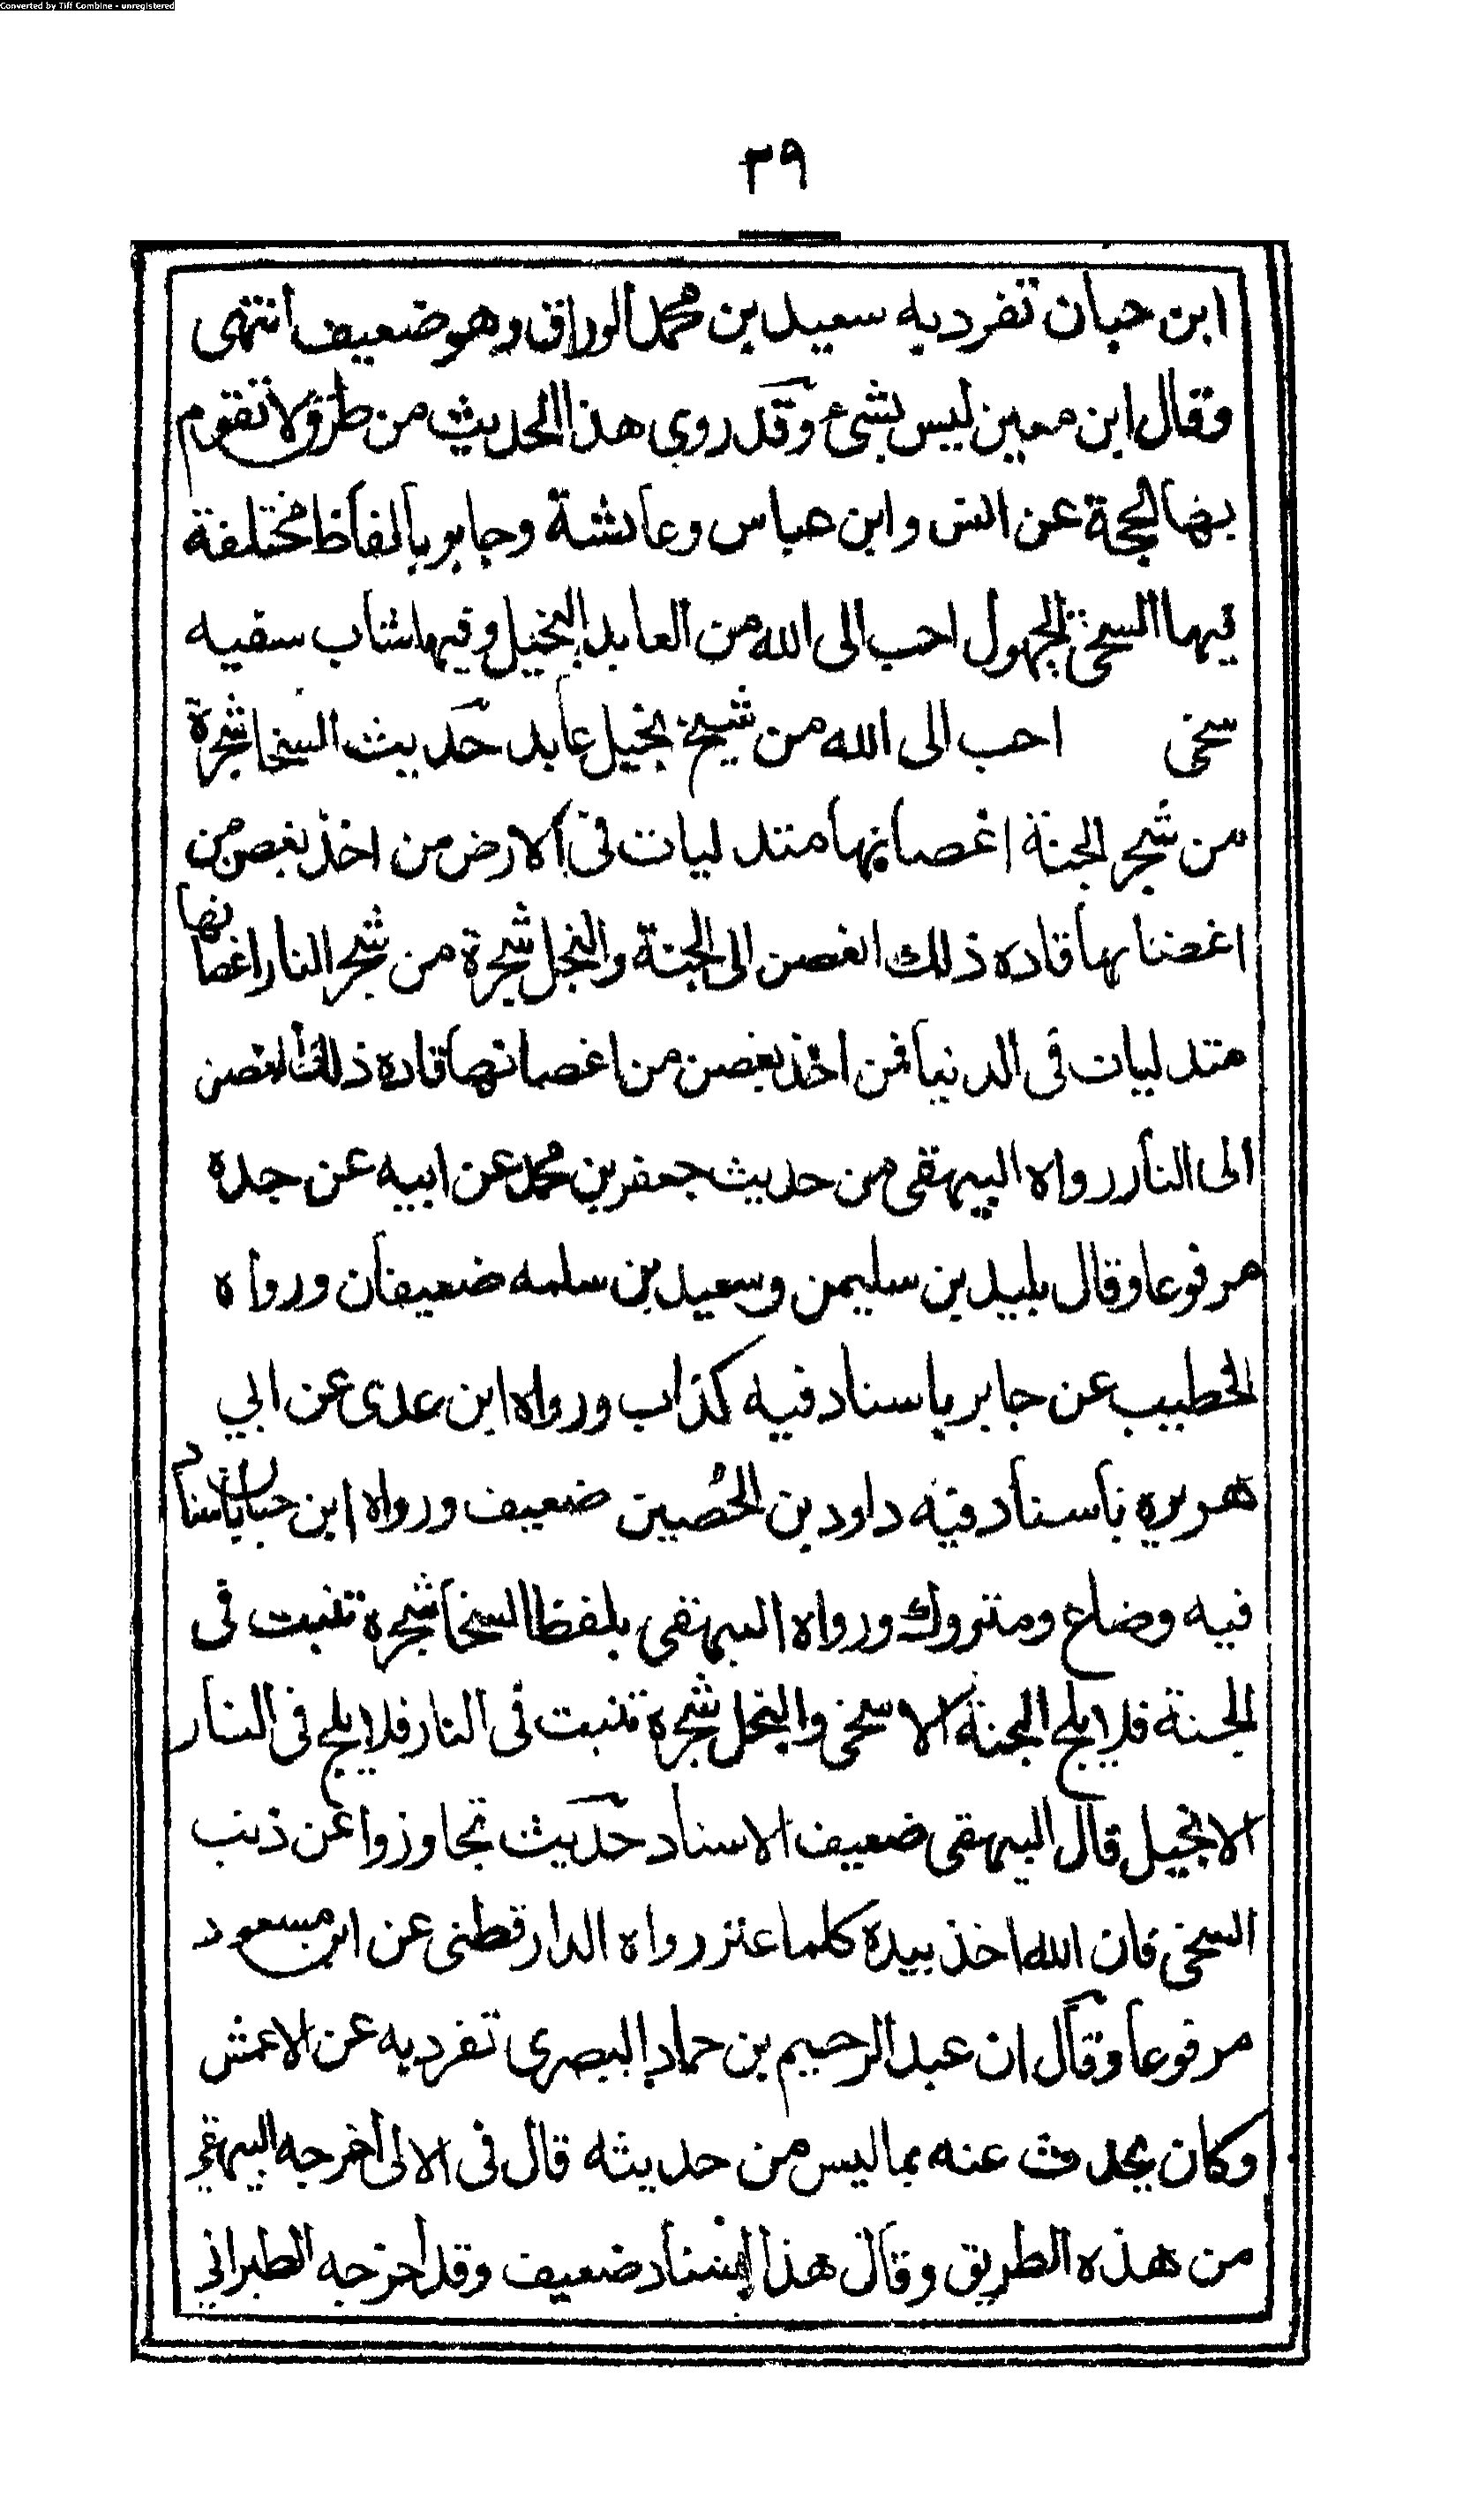 Converted by Tiff Combine - unregistered
٣٩
ابن حبان تفرد به سعيد بن محمد الوراق وهو ضعيف انتهى
وقال ابن معين ليس بشئ وقد روى هذا الحديث من طرق لا تقوم
بها الحجة عن انس وابن عباس وعائشة وجابر بالفاظ مختلفة
فيها السخى الجهول احب الى الله من العابد البخيل وفيها شاب سفيه
سخى احب الى الله من شيخ بخيل عابد حديث السخا شجرة
من شجر الجنة اغصانها متدليات فى الارض من اخذ بغصن من
اغصنانها قاده ذلك الغصن الى الجنة والبخل شجرة من شجر النار اغصانها
متدليات فى الدنيا فمن اخذ بغصن من اغصانها قاده ذلك الغصن
الى النار رواه البيهقى من حديث جعفر بن محمد عن ابيه عن جده
مرفوعا وقال بليد بن سليمن وسعيد بن سلمه ضعيفان ورواه
الخطيب عن جابر باسناد فيه كذاب ورواه ابن عدى عن ابي
هريره باسناد فيه داود بن الحصين ضعيف ورواه ابن حبان باسناد
فيه وضاع ومتروك ورواه البيهقى بلفظ السخا شجرة تنبت فى
الجنة فلا يلج الجنة الا سخى والبخل شجرة تنبت فى النار فلا يلج فى النار
الا بخيل قال البيهقى ضعيف الاسناد حديث تجاوزوا عن ذنب
السخى فان الله اخذ بيده كلما عثر رواه الدارقطنى عن ابن مسعود
مرفوعا وقال ان عبد الرحيم بن حماد البصرى تفرد به عن الاعمش
وكان يحدث عنه بما ليس من حديثه قال فى الالى اخرجه البيهقى
من هذه الطريق وقال هذا اسناد ضعيف وقد اخرجه الطبراني